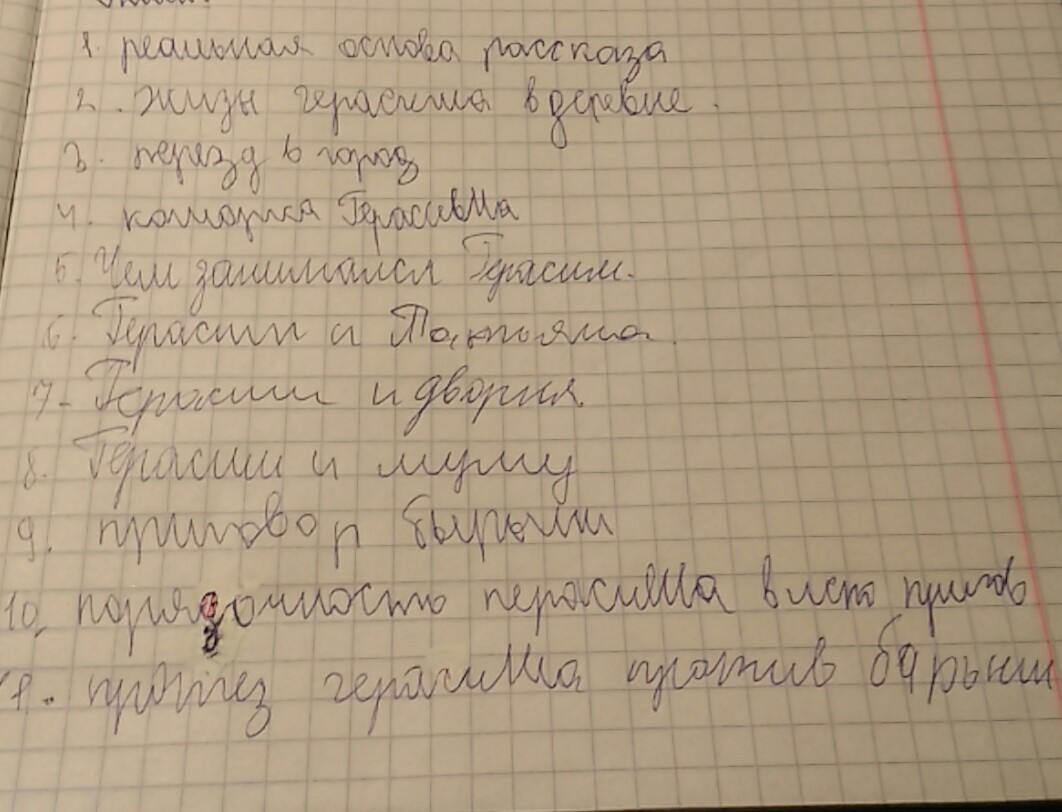 1. реальная основа рассказа
2. жизнь герасима в деревне.
3. перезд в город
4. каморка Герасима
5. Чем занимался Герасим.
6. Герасим и Татьяна.
7. Герасим и дворня.
8. Герасим и муму
9. приговор барыни
10. порядочность герасима в
11. протез герасима против барыни